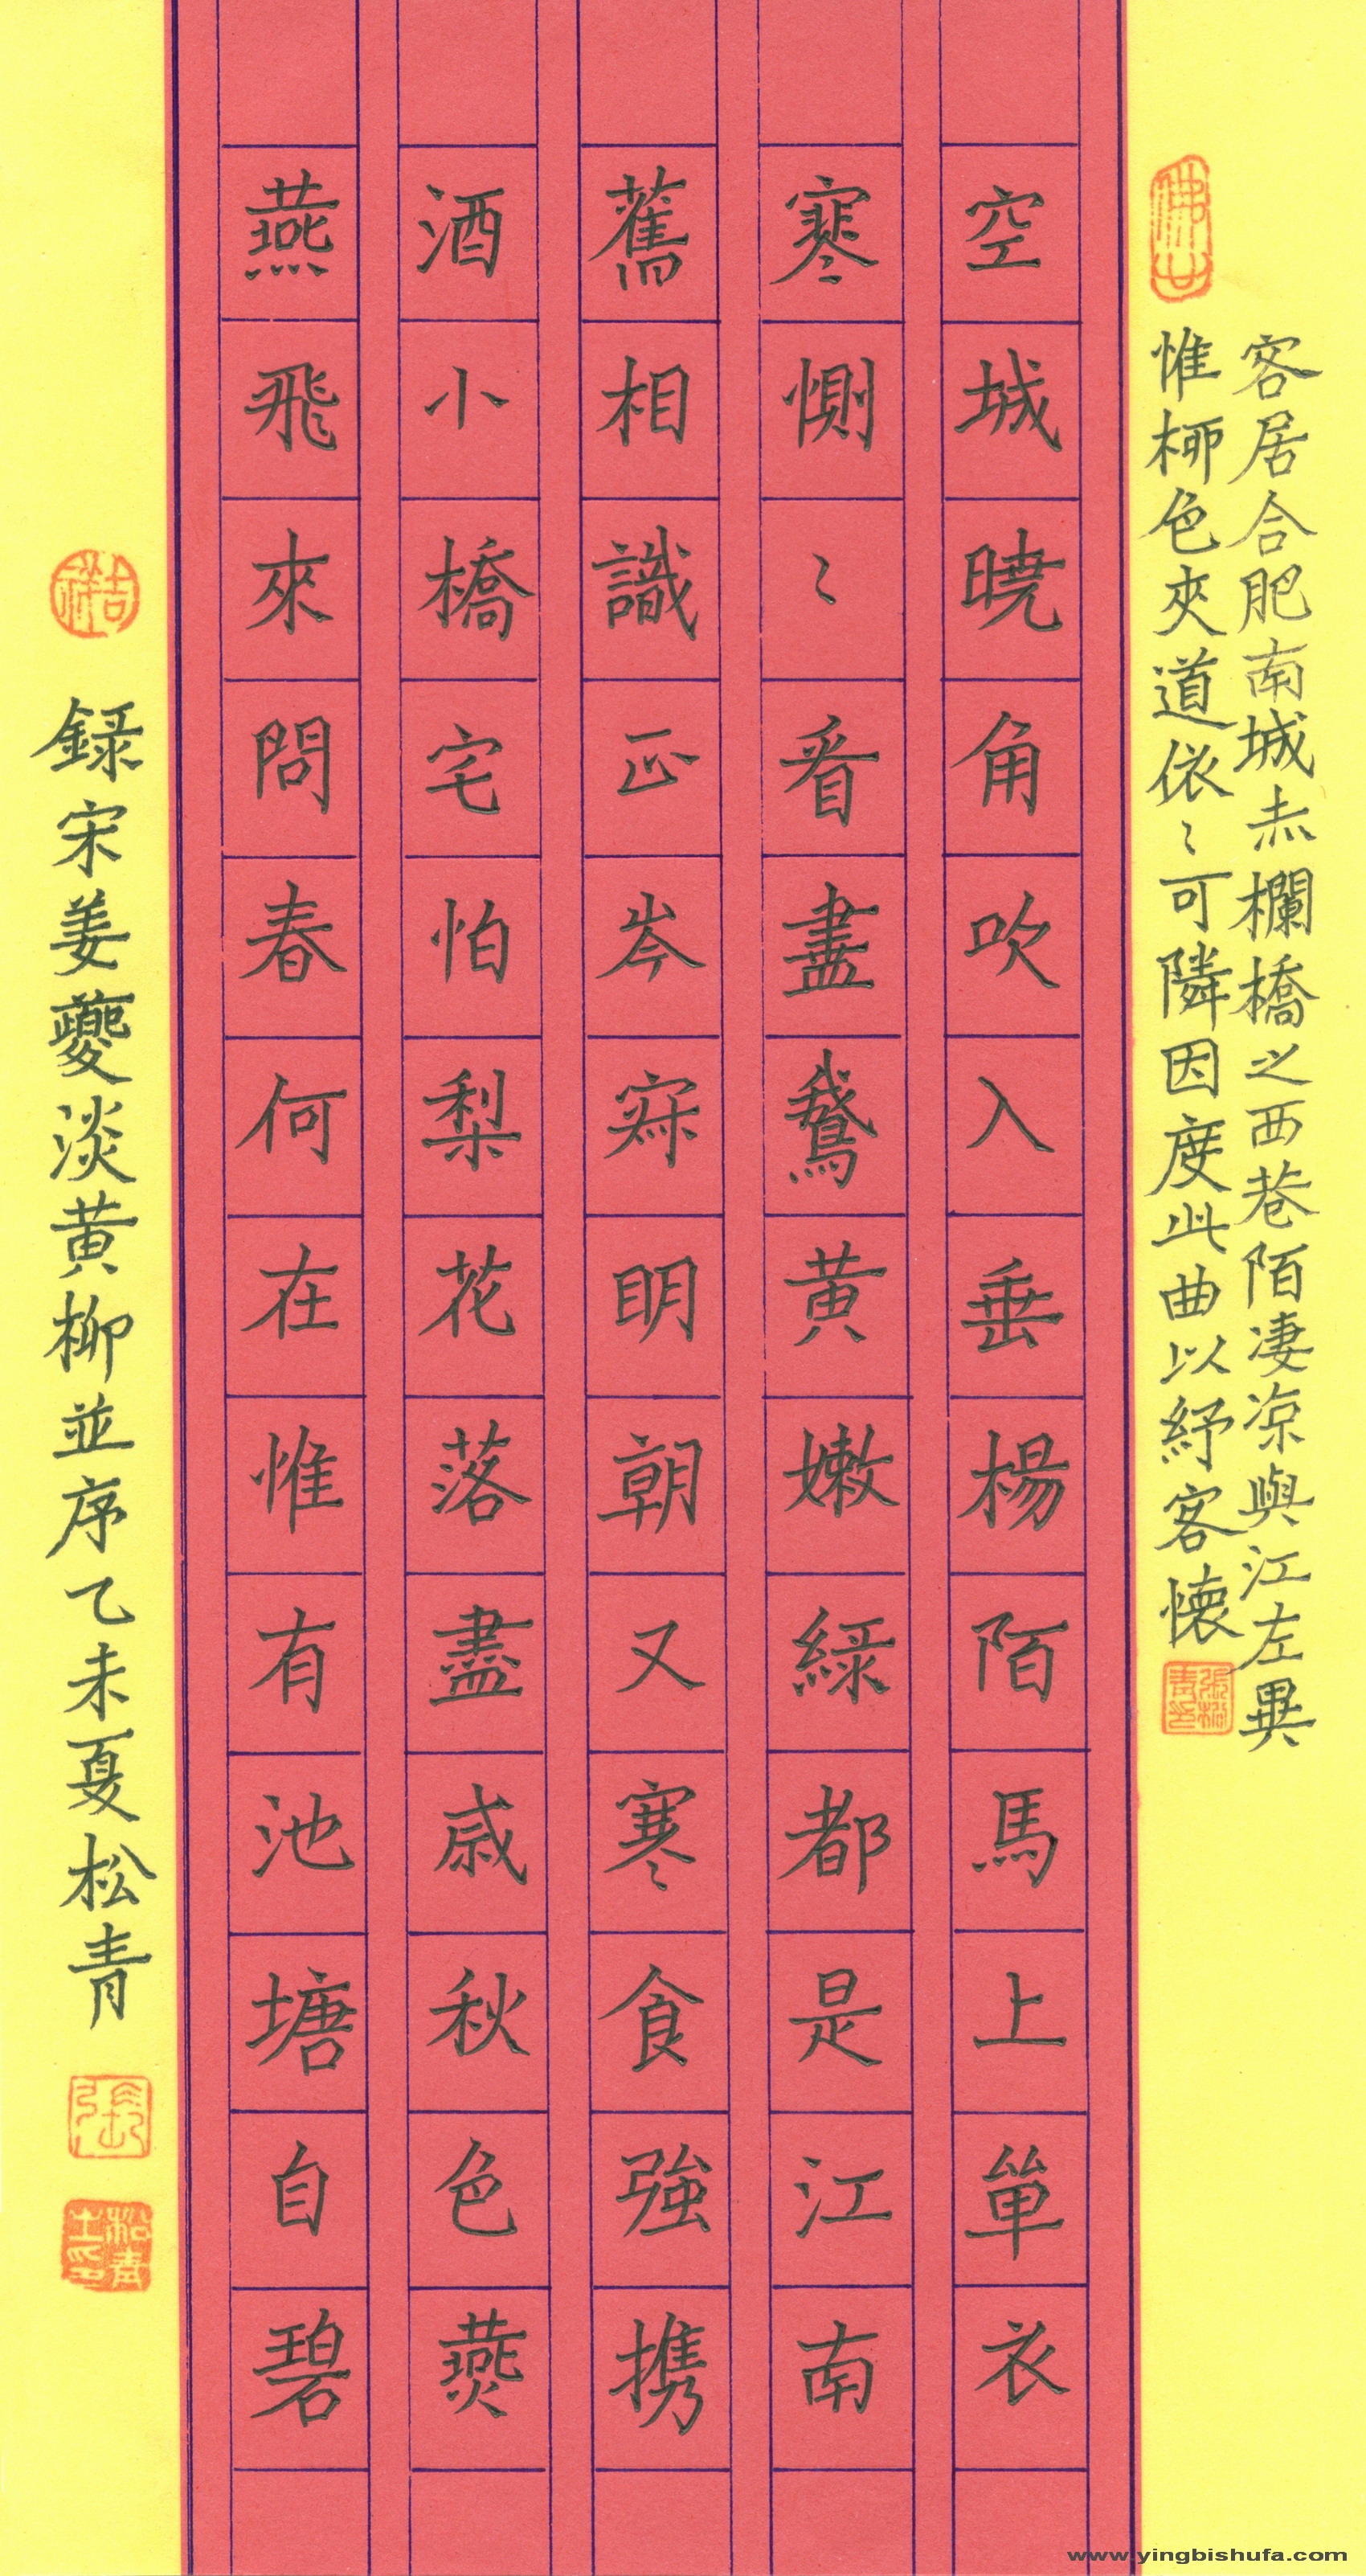 客居合肥南城赤欄橋之西巷陌凄涼與江左異
惟柳色夾道依〻可隣因度此曲以紓客懷
空城曉角吹入垂楊陌馬上單衣
寒惻〻看盡鵞黄嫩綠都是江南
舊相識正岑寂明朝又寒食強携
酒小橋宅怕梨花落盡成秋色燕
燕飛來問春何在惟有池塘自碧
錄宋姜夔淡黄柳並序乙未夏松青
吉祥
張
松青
www.yingbishufa.com